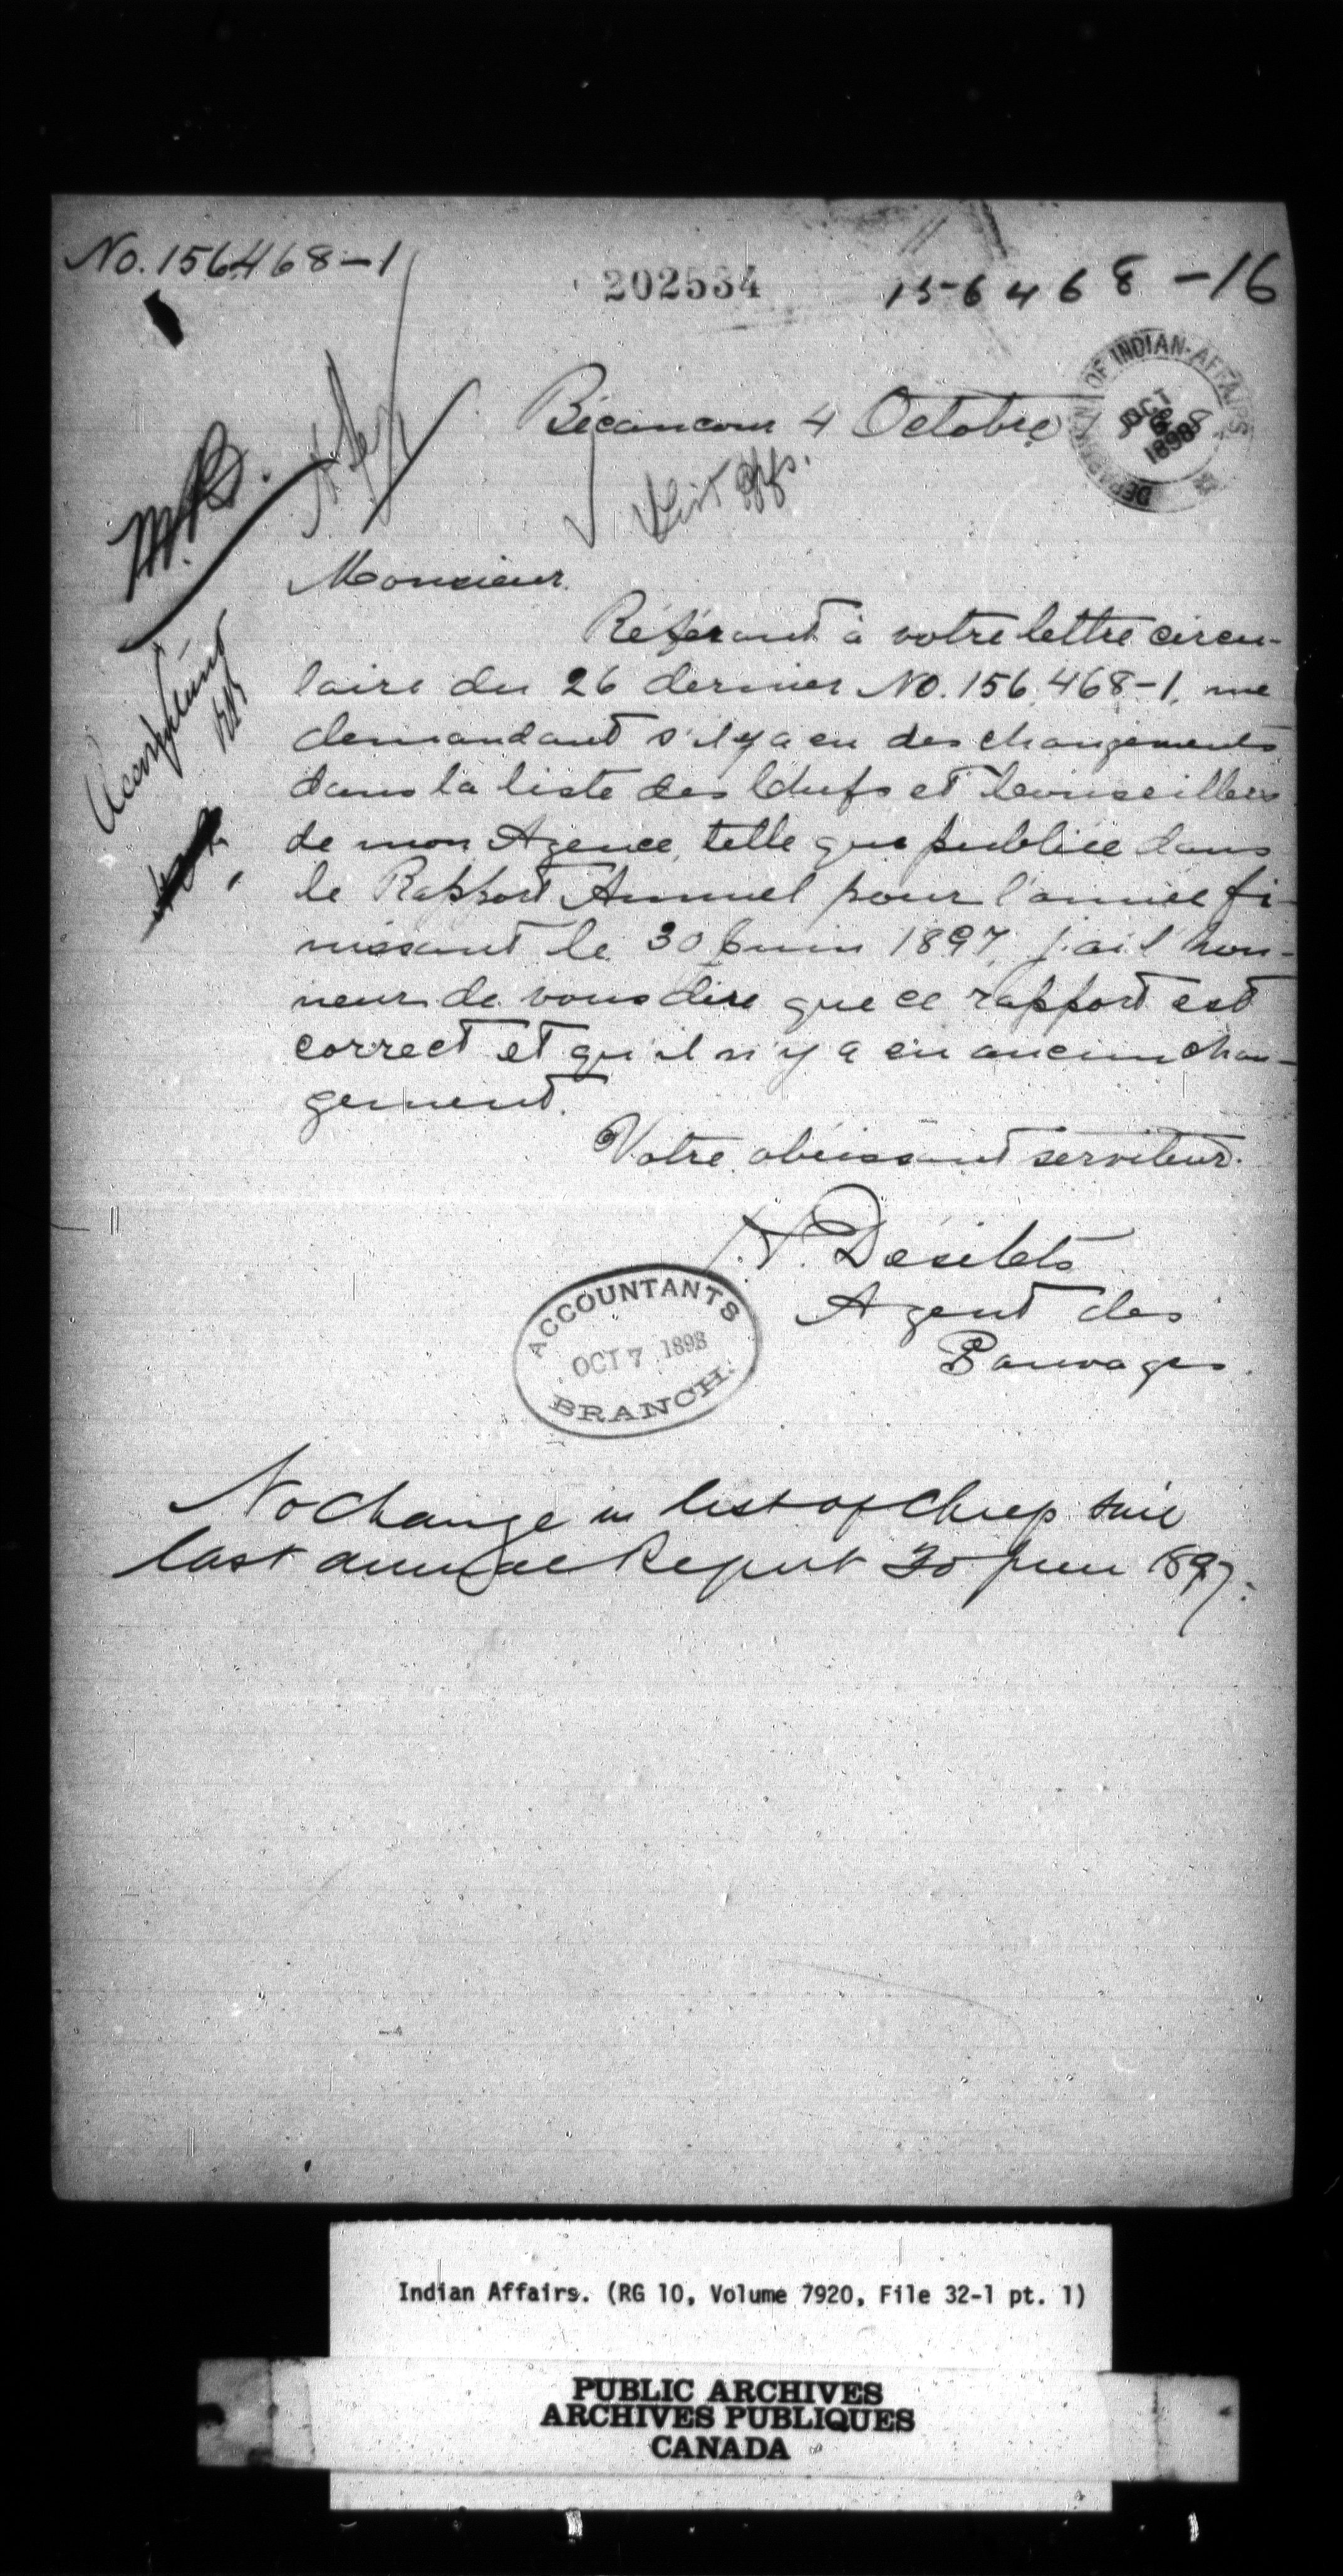 No. 156468-1
202534
156468-16
DEPARTMENT OF INDIAN AFFAIRS
OCT 6 1898
Bécancour 4 Octobre
List
Monsieur.
Référant à votre lettre circu-
laire du 26 dernier No. 156,468-1, me
demandant s'il y a eu des changements
dans la liste des Chefs et Conseillers
de mon Agence, telle que publiée dans
le Rapport Annuel pour l'année fi-
nissant le 30 Juin 1897, j'ai l'hon-
neur de vous dire que ce rapport est
correct et qu'il n'y a eu aucun chan-
gement.
Votre obéissant serviteur.
Désilets
Agent des
Sauvages.
ACCOUNTANTS
OCT 7 1898
BRANCH.
No change in list of Chiefs since
last annual Report 30 June 1897.
Indian Affairs. (RG 10, Volume 7920, File 32-1 pt. 1)
PUBLIC ARCHIVES
ARCHIVES PUBLIQUES
CANADA